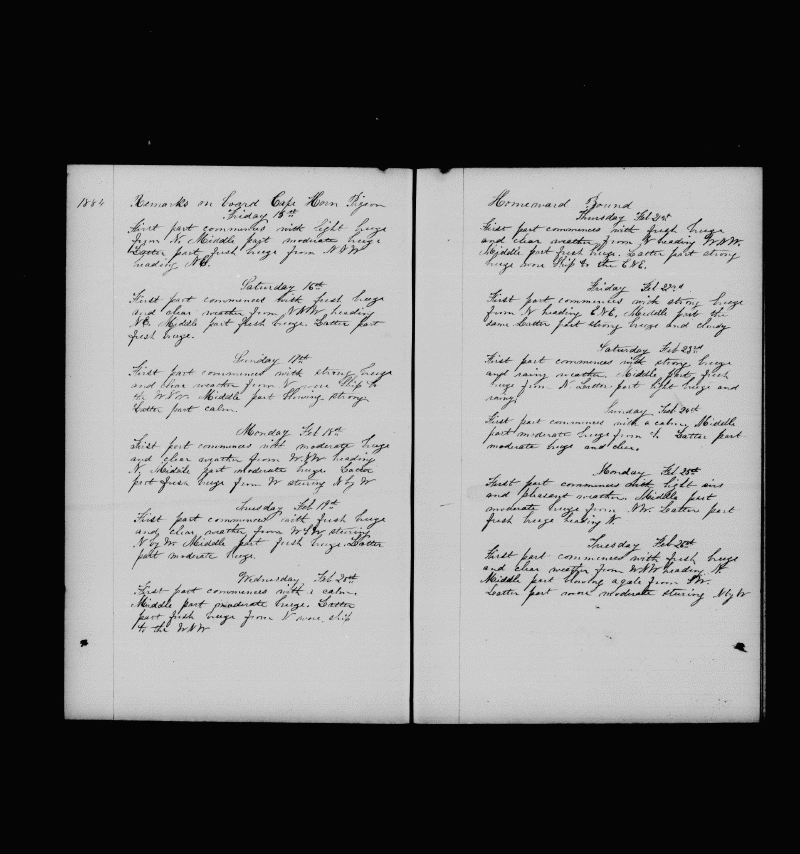 1884 Remarks on board Cape Horn Pigeon
Friday 15th
First part commences with light breeze
from N. Middle part moderate breeze
Latter part fresh breeze from NNW
heading NE.
Saturday 16th
First part commences with fresh breeze
and clear weather from NNW heading
NE. Middle part fresh breeze. Latter part
fresh breeze.
Sunday 17th
First part commences with strong breeze
and clear weather from N wore Ship to
the WNW. Middle part blowing strong
Latter part calm.
Monday Feb 18th
First part commences with moderate breeze
and clear weather from heading
N. Middle part moderate breeze. Latter
part fresh breeze from W stering N by W
Tuesday Feb 19th
First part commences with fresh breeze
and clear weather from WSW stering
N by W. Middle part fresh breeze. Latter
part moderate breeze.
Wednesday Feb 20th
First part commences with a calm.
Middle part moderate breeze. Latter
part fresh breeze from N wore ship
to the WNW
Homeward Bound
Thursday Feb 21st
First part commences with fresh breeze
and clear weather from N heading WNW.
Middle part fresh breeze. Latter part strong
breeze wore Ship to the ENE.
Friday Feb 22nd
First part commences with strong breeze
from N heading ENE, Middle part the
same Latter part strong breeze and cloudy
Saturday Feb 23rd
First part commences with strong breeze
and rainy weather Middle part fresh
breeze from N Latter part light breeze and
rainy.
Sunday Feb 24th
First part commences with a calm, Middle
part moderate breeze from Latter part
moderate breeze and clear.
Monday Feb 25th
First part commences with light airs
and pleasent weather. Middle part
moderate breeze from NW. Latter part
fresh breeze heading N.
Tuesday Feb 26th
First part commences with fresh breeze
and clear weather from WNW heading N.
Middle part blowing a gale from
Latter part more moderate stering N by W